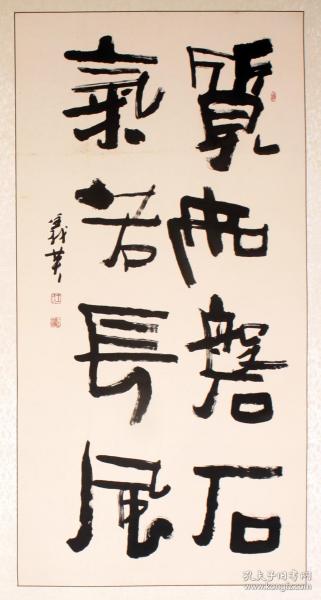 質如磐石
氣若長風
孔夫子旧书网
www.kongfz.com